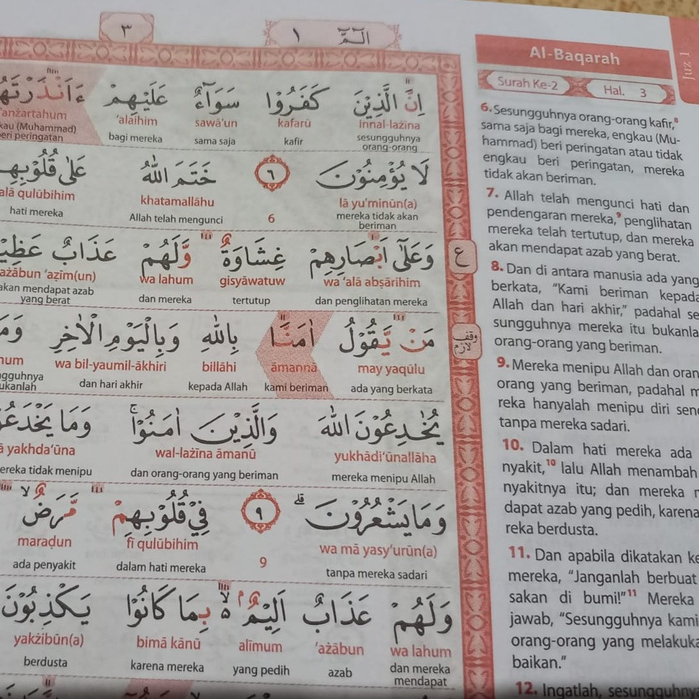 ٣
الٓمّٓ ١
اِنَّ الَّذِيْنَ كَفَرُوْا سَوَاۤءٌ عَلَيْهِمْ
innal-lażīna kafarū sawā'un 'alaihim
sesungguhnya orang-orang kafir sama saja bagi mereka
(Muhammad)
beri peringatan
لَا يُؤْمِنُوْنَ ٦ خَتَمَ اللّٰهُ عَلٰى
lā yu'minūn(a) 6 khatamallāhu qulūbihim
mereka tidak akan beriman Allah telah mengunci hati mereka
وَعَلٰٓى اَبْصَارِهِمْ غِشَاوَةٌ وَّلَهُمْ عَذَابٌ
wa 'alā abṣārihim gisyāwatuw wa lahum 'aẓīm(un)
dan penglihatan mereka tertutup dan mereka akan mendapat azab yang berat
مَنْ يَّقُوْلُ اٰمَنَّا بِاللّٰهِ وَبِالْيَوْمِ الْاٰخِرِ
may yaqūlu āmannā billāhi wa bil-yaumil-ākhiri
ada yang berkata kami beriman kepada Allah dan hari akhir
يُخٰدِعُوْنَ اللّٰهَ وَالَّذِيْنَ اٰمَنُوْا وَمَا
yukhādi'ūnallāha wal-lażīna āmanū yakhda'ūna
mereka menipu Allah dan orang-orang yang beriman tidak menipu
وَمَا يَشْعُرُوْنَ ٩ فِيْ قُلُوْبِهِمْ مَّرَضٌ
wa mā yasy'urūn(a) 9 fī qulūbihim maraḍun
tanpa mereka sadari dalam hati mereka ada penyakit
وَلَهُمْ عَذَابٌ اَلِيْمٌ ەۙ بِمَا كَانُوْا يَكْذِبُوْنَ
wa lahum 'ażābun alīmum bimā kānū yakżibūn(a)
dan mereka mendapat azab yang pedih karena mereka berdusta
Juz 1
Al-Baqarah
Surah Ke-2 Hal. 3
6. Sesungguhnya orang-orang kafir,⁸
sama saja bagi mereka, engkau (Mu-
hammad) beri peringatan atau tidak
engkau beri peringatan, mereka
tidak akan beriman.
7. Allah telah mengunci hati dan
pendengaran mereka,⁹ penglihatan
mereka telah tertutup, dan mereka
akan mendapat azab yang berat.
8. Dan di antara manusia ada yang
berkata, "Kami beriman kepada
Allah dan hari akhir," padahal se
sungguhnya mereka itu bukanla
orang-orang yang beriman.
9. Mereka menipu Allah dan oran
orang yang beriman, padahal m
reka hanyalah menipu diri send
tanpa mereka sadari.
10. Dalam hati mereka ada
nyakit,¹⁰ lalu Allah menambah
nyakitnya itu; dan mereka
dapat azab yang pedih, karena
reka berdusta.
11. Dan apabila dikatakan ke
mereka, "Janganlah berbuat
sakan di bumi!"¹¹ Mereka
jawab, "Sesungguhnya kami
orang-orang yang melakuka
baikan."
12. Ingatlah, sesungguhn